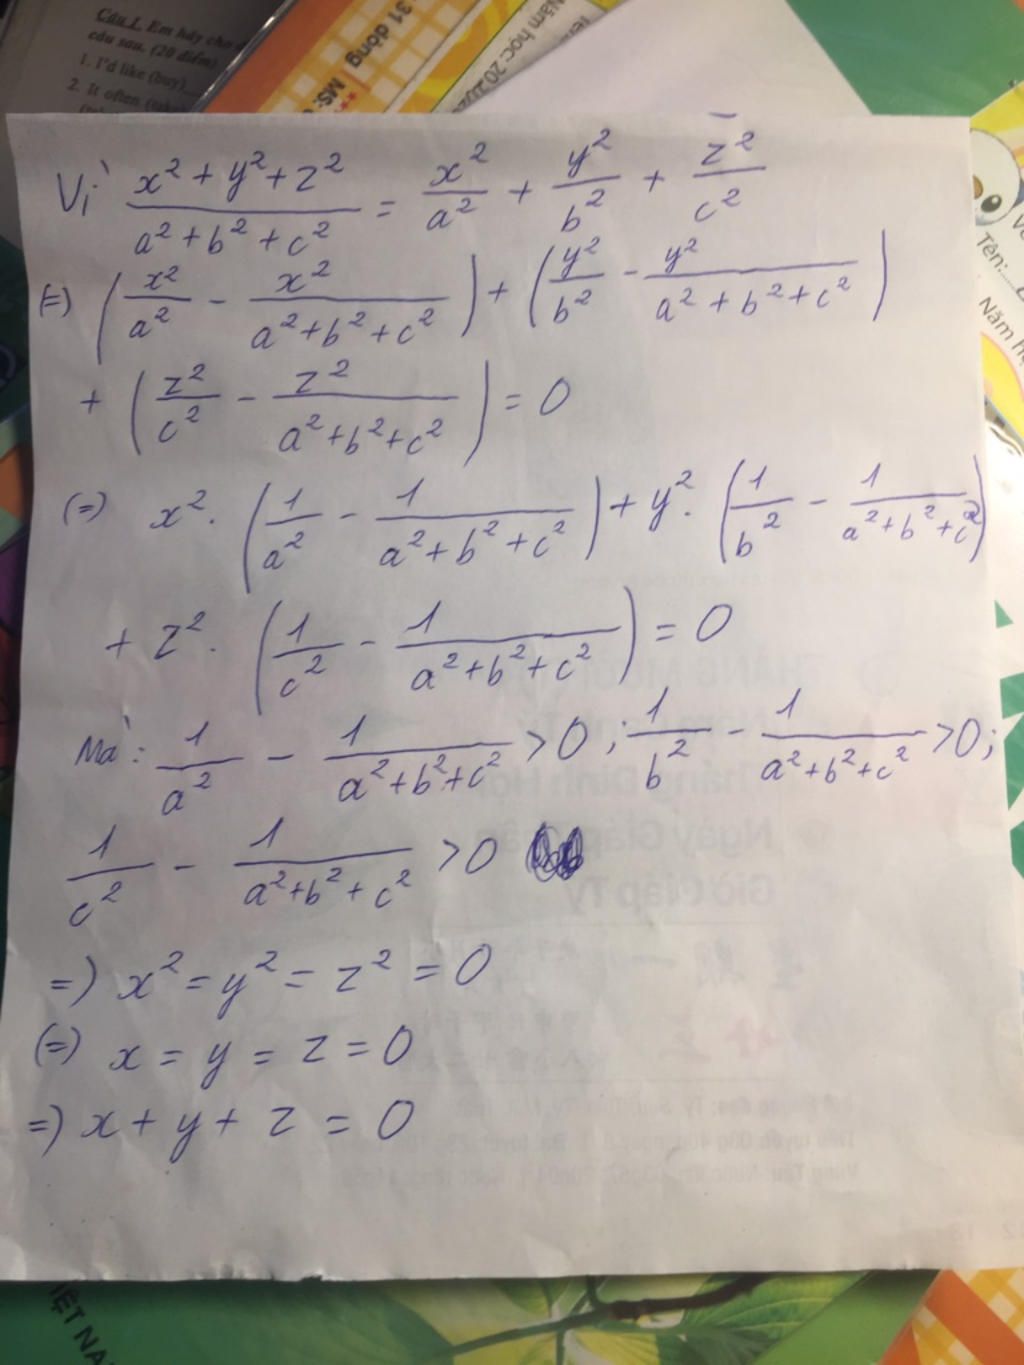 Câu 1. Em hãy cho
câu sau. (20 điểm)
1. I'd like (buy)
2. It often (take)
31 dòng
MS:
Năm học: 20
Vì (x² + y² + z²)/(a² + b² + c²) = x²/a² + y²/b² + z²/c²
(=) (x²/a² - x²/(a² + b² + c²)) + (y²/b² - y²/(a² + b² + c²))
+ (z²/c² - z²/(a² + b² + c²)) = 0
(=) x² . (1/a² - 1/(a² + b² + c²)) + y² . (1/b² - 1/(a² + b² + c²))
+ z² . (1/c² - 1/(a² + b² + c²)) = 0
Mà : 1/a² - 1/(a² + b² + c²) > 0 ; 1/b² - 1/(a² + b² + c²) > 0 ;
1/c² - 1/(a² + b² + c²) > 0
=) x² = y² = z² = 0
(=) x = y = z = 0
=) x + y + z = 0
Tên:
Năm h
IỆT NA